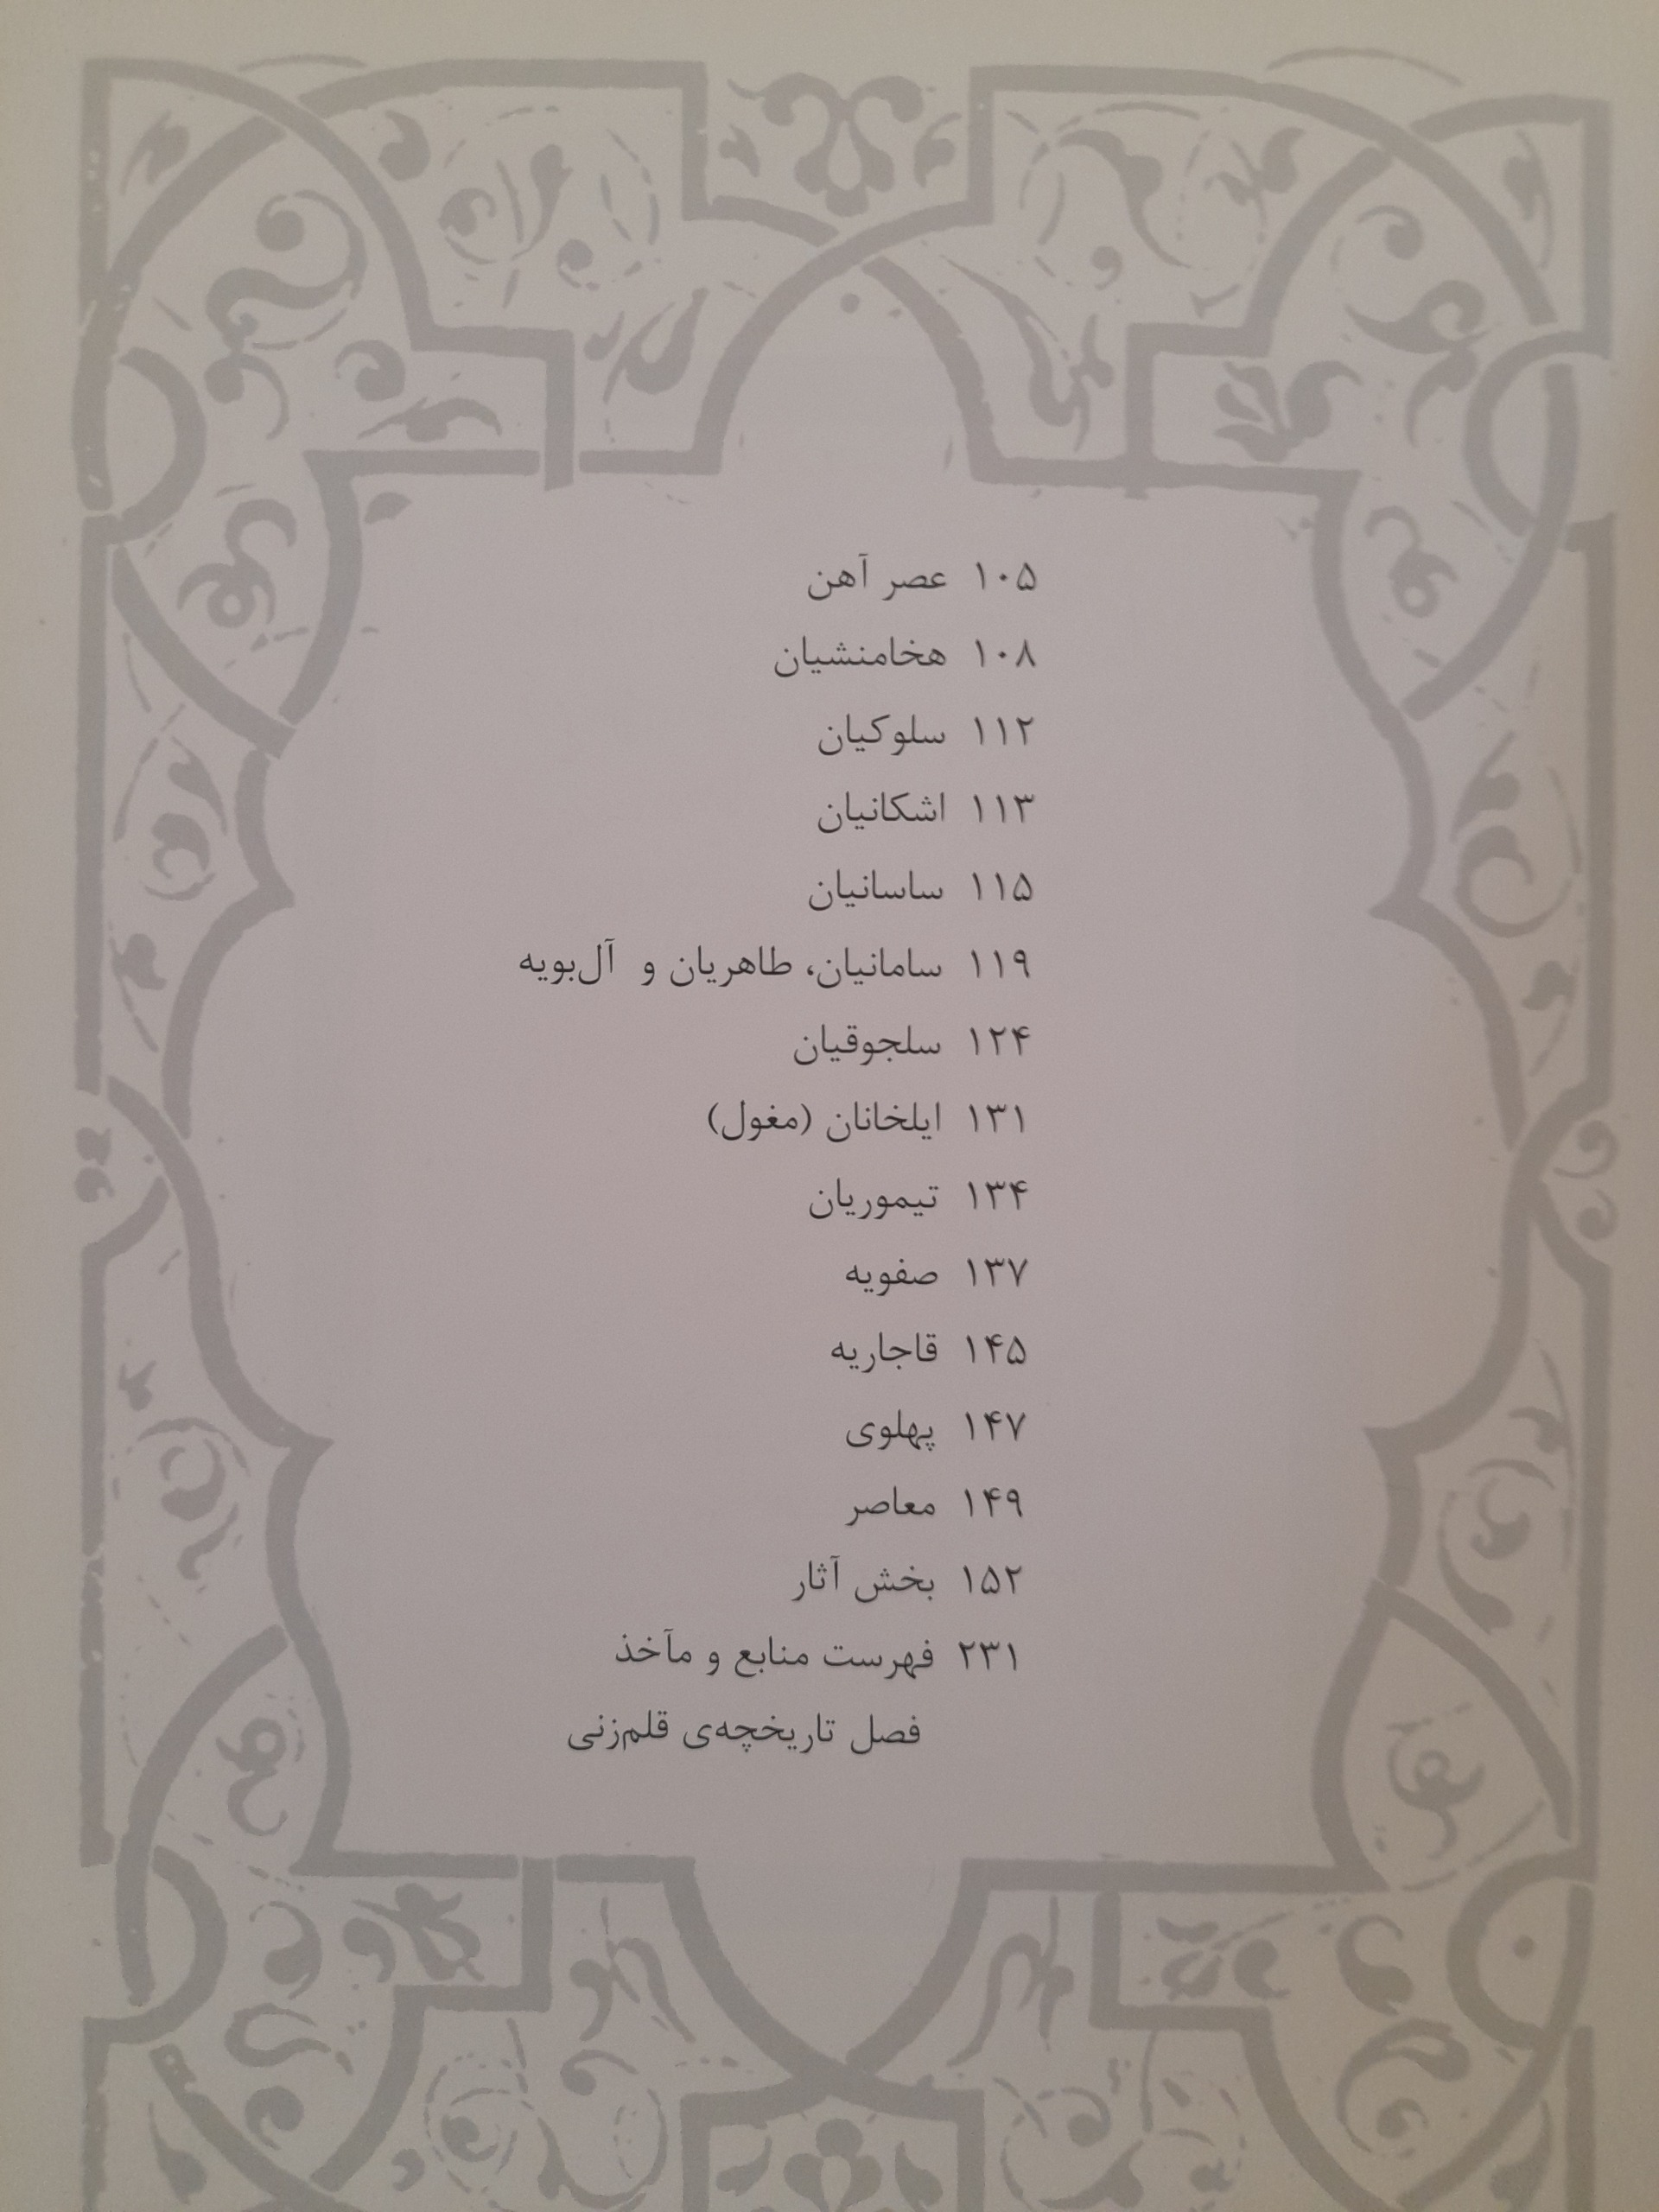 ۱۰۵ عصر آهن
۱۰۸ هخامنشیان
۱۱۲ سلوکیان
۱۱۳ اشکانیان
۱۱۵ ساسانیان
۱۱۹ سامانیان، طاهریان و آل‌بویه
۱۲۴ سلجوقیان
۱۳۱ ایلخانان (مغول)
۱۳۴ تیموریان
۱۳۷ صفویه
۱۴۵ قاجاریه
۱۴۷ پهلوی
۱۴۹ معاصر
۱۵۲ بخش آثار
۲۳۱ فهرست منابع و مآخذ
فصل تاریخچه‌ی قلم‌زنی